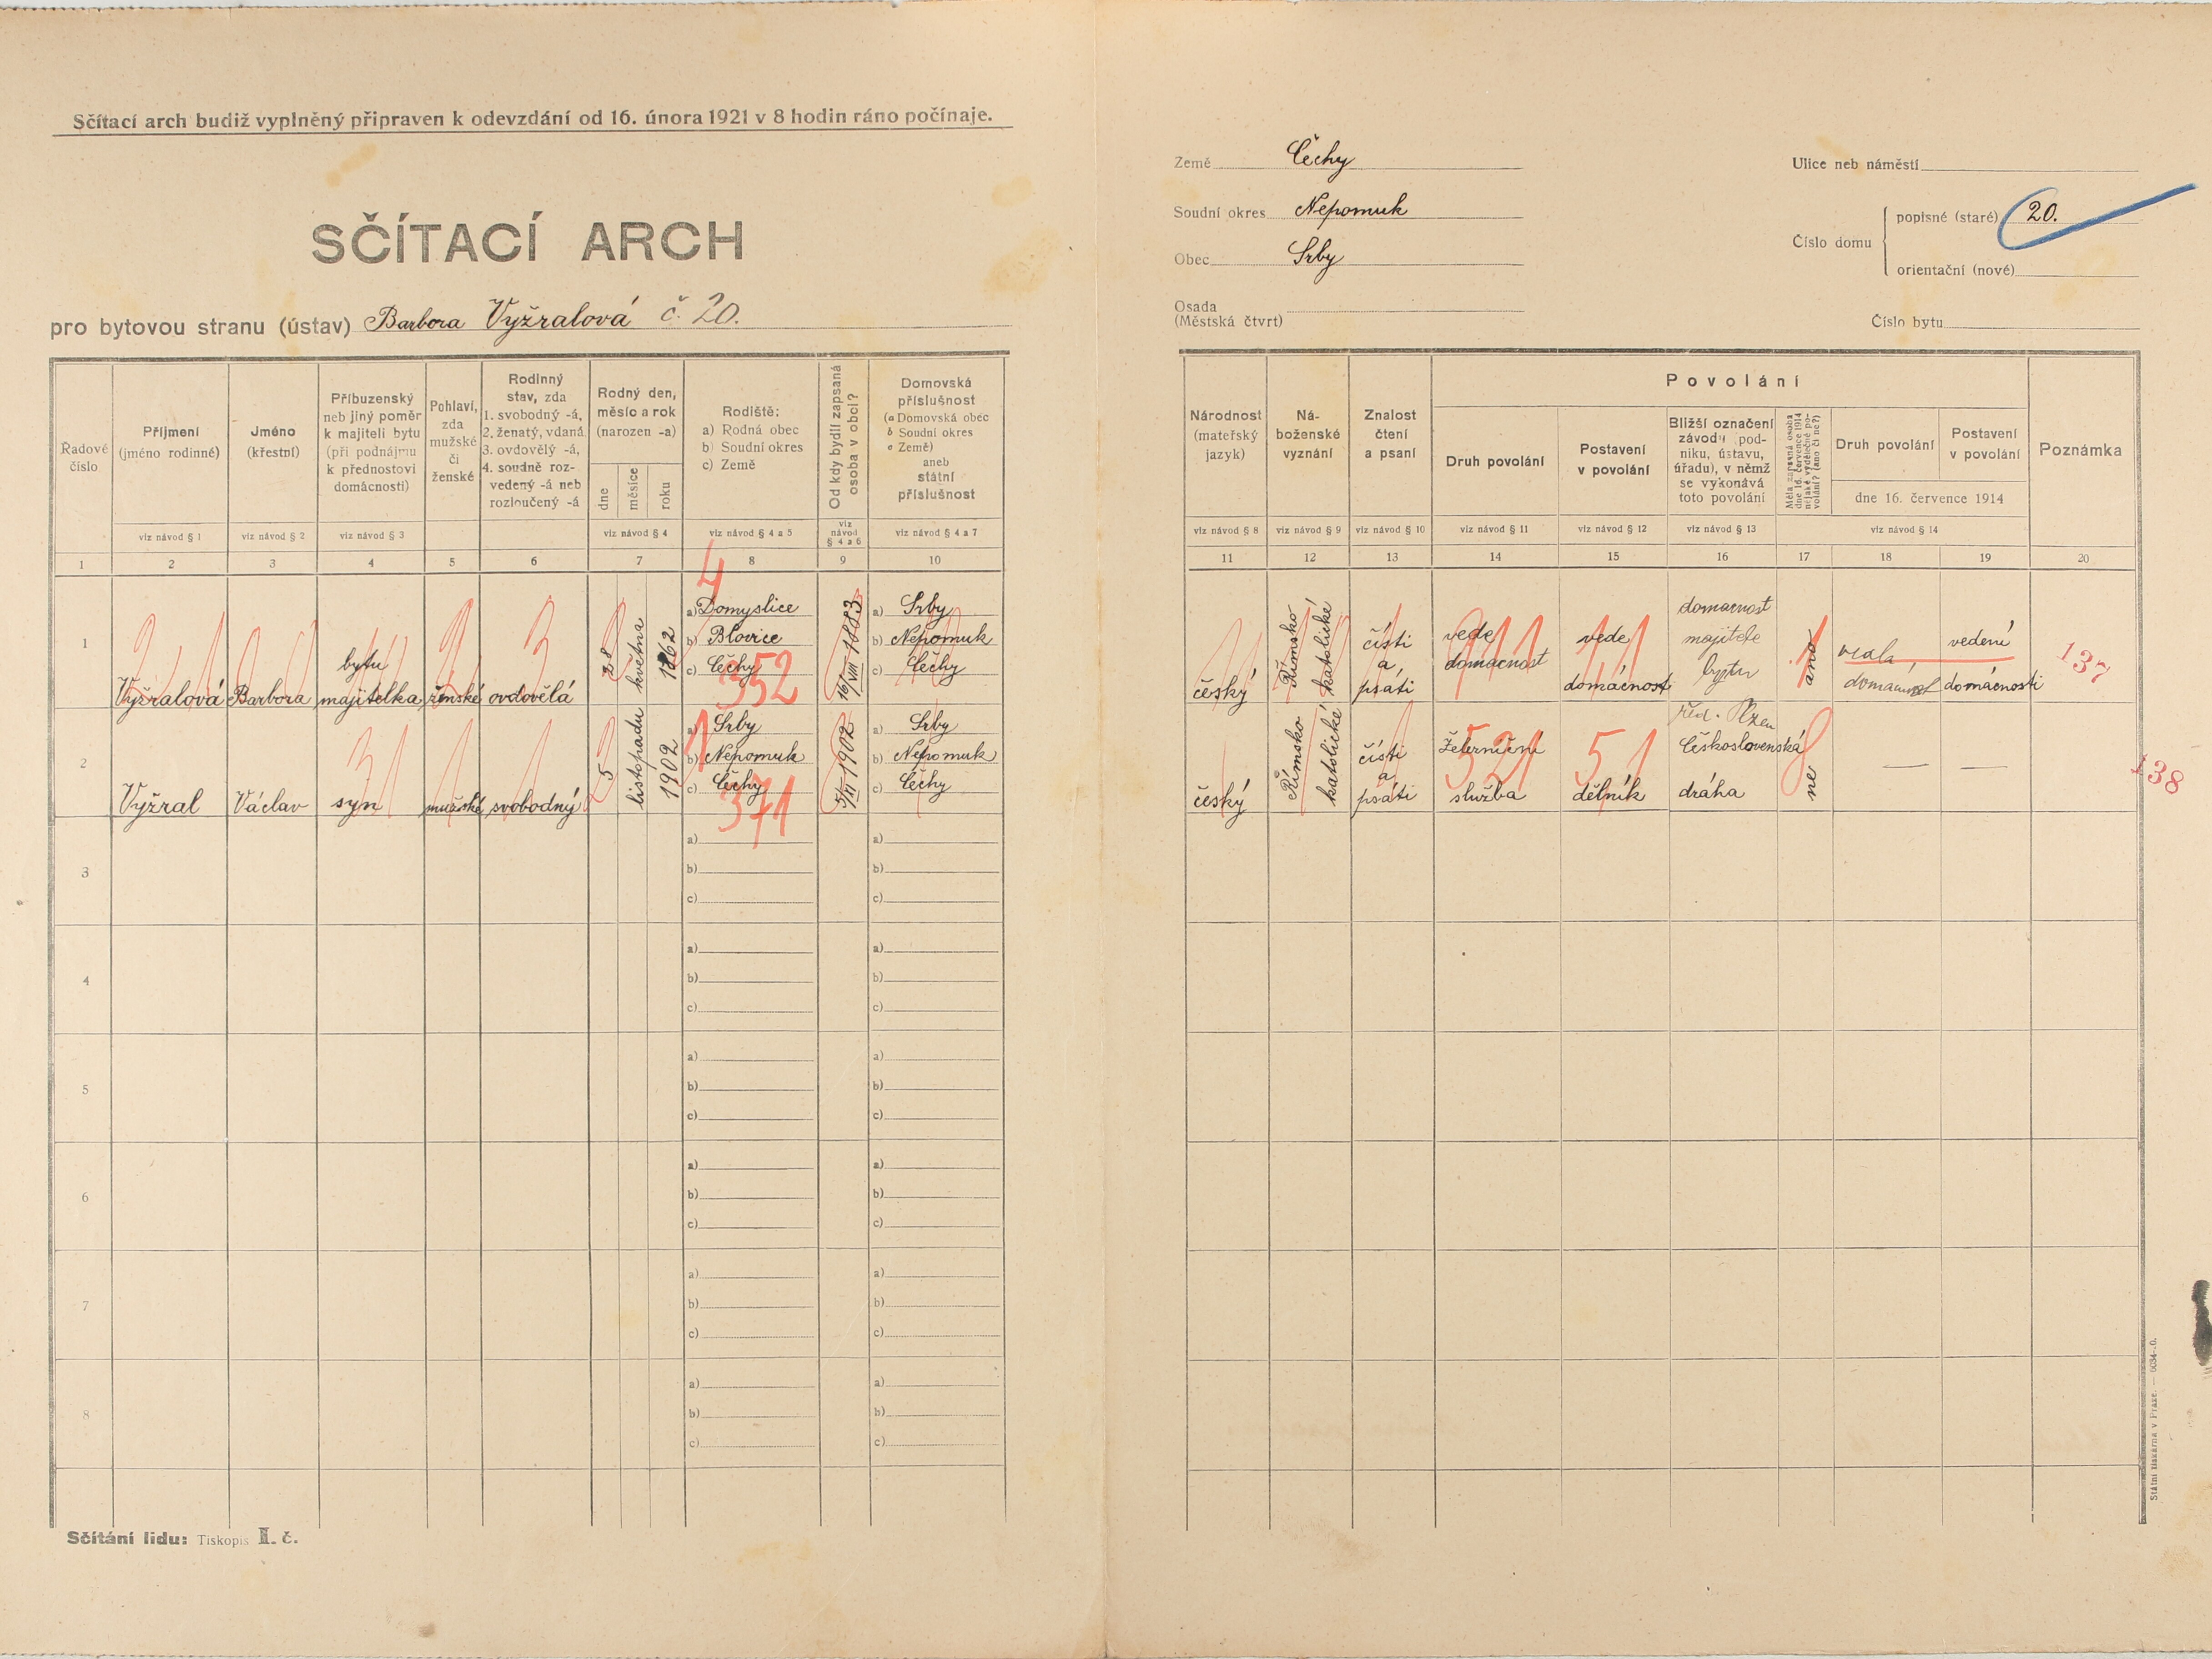 Sčítací arch budiž vyplněný připraven k odevzdání od 16. února 1921 v 8 hodin ráno počínaje.
SČÍTACÍ ARCH
pro bytovou stranu (ústav) Barbora Vyžralová č. 20.
Země Čechy
Soudní okres Nepomuk
Obec Srby
Osada
(Městská čtvrt)
Ulice neb náměstí
Číslo domu
popisné (staré) 20.
orientační (nové)
Číslo bytu
Řadové
číslo
Příjmení
(jméno rodinné)
Jméno
(křestní)
Příbuzenský
neb jiný poměr
k majiteli bytu
(při podnájmu
k přednostovi
domácnosti)
Pohlaví,
zda
mužské
či
ženské
Rodinný
stav, zda
1. svobodný -á,
2. ženatý, vdaná
3. ovdovělý -á,
4. soudně roz-
vedený -á neb
rozloučený -á
Rodný den,
měsíc a rok
(narozen -a)
dne
měsíce
roku
Rodiště:
a) Rodná obec
b) Soudní okres
c) Země
Od kdy bydlí zapsaná
osoba v obci?
Domovská
příslušnost
(a Domovská obec
b Soudní okres
c Země)
aneb
státní
příslušnost
viz návod § 1
viz návod § 2
viz návod § 3
viz návod § 4
viz návod § 4 a 5
viz
návod
§ 4 a 6
viz návod § 4 a 7
1 2 3 4 5 6 7 8 9 10
Národnost
(mateřský
jazyk)
Ná-
boženské
vyznání
Znalost
čtení
a psaní
Povolání
Druh povolání
Postavení
v povolání
Bližší označení
závodu pod-
niku, ústavu,
úřadu), v němž
se vykonává
toto povolání
Měla zapsaná osoba
dne 16. července 1914
nějaké výdělečné po-
volání? (ano či ne?)
Druh povolání
Postavení
v povolání
dne 16. července 1914
Poznámka
viz návod § 8
viz návod § 9
viz návod § 10
viz návod § 11
viz návod § 12
viz návod § 13
viz návod § 14
11 12 13 14 15 16 17 18 19 20
1
Vyžralová
Barbora
bytu
majitelka
ženské
ovdovělá
28
května
1862
4
a) Domyslice
b) Blovice
c) Čechy
352
16/VIII 1883
a) Srby
b) Nepomuk
c) Čechy
český
Římsko
katolické
čísti
a
psáti
vede
domácnost
911
vede
domácnost
domacnost
majitele
bytu
ano
vedla
domácnost
vedení
domácnosti
137
2
Vyžral
Václav
syn
mužské
svobodný
5
listopadu
1902
a) Srby
b) Nepomuk
c) Čechy
371
5/XI 1902
a) Srby
b) Nepomuk
c) Čechy
český
Římsko
katolické
čísti
a
psáti
Železniční
služba
521
dělník
51
řed. Plzen
Československá
dráha
ne
—
—
138
3
a)
b)
c)
a)
b)
c)
4
a)
b)
c)
a)
b)
c)
5
a)
b)
c)
a)
b)
c)
6
a)
b)
c)
a)
b)
c)
7
a)
b)
c)
a)
b)
c)
8
a)
b)
c)
a)
b)
c)
Sčítání lidu: Tiskopis I. č.
Státní tiskárna v Praze.